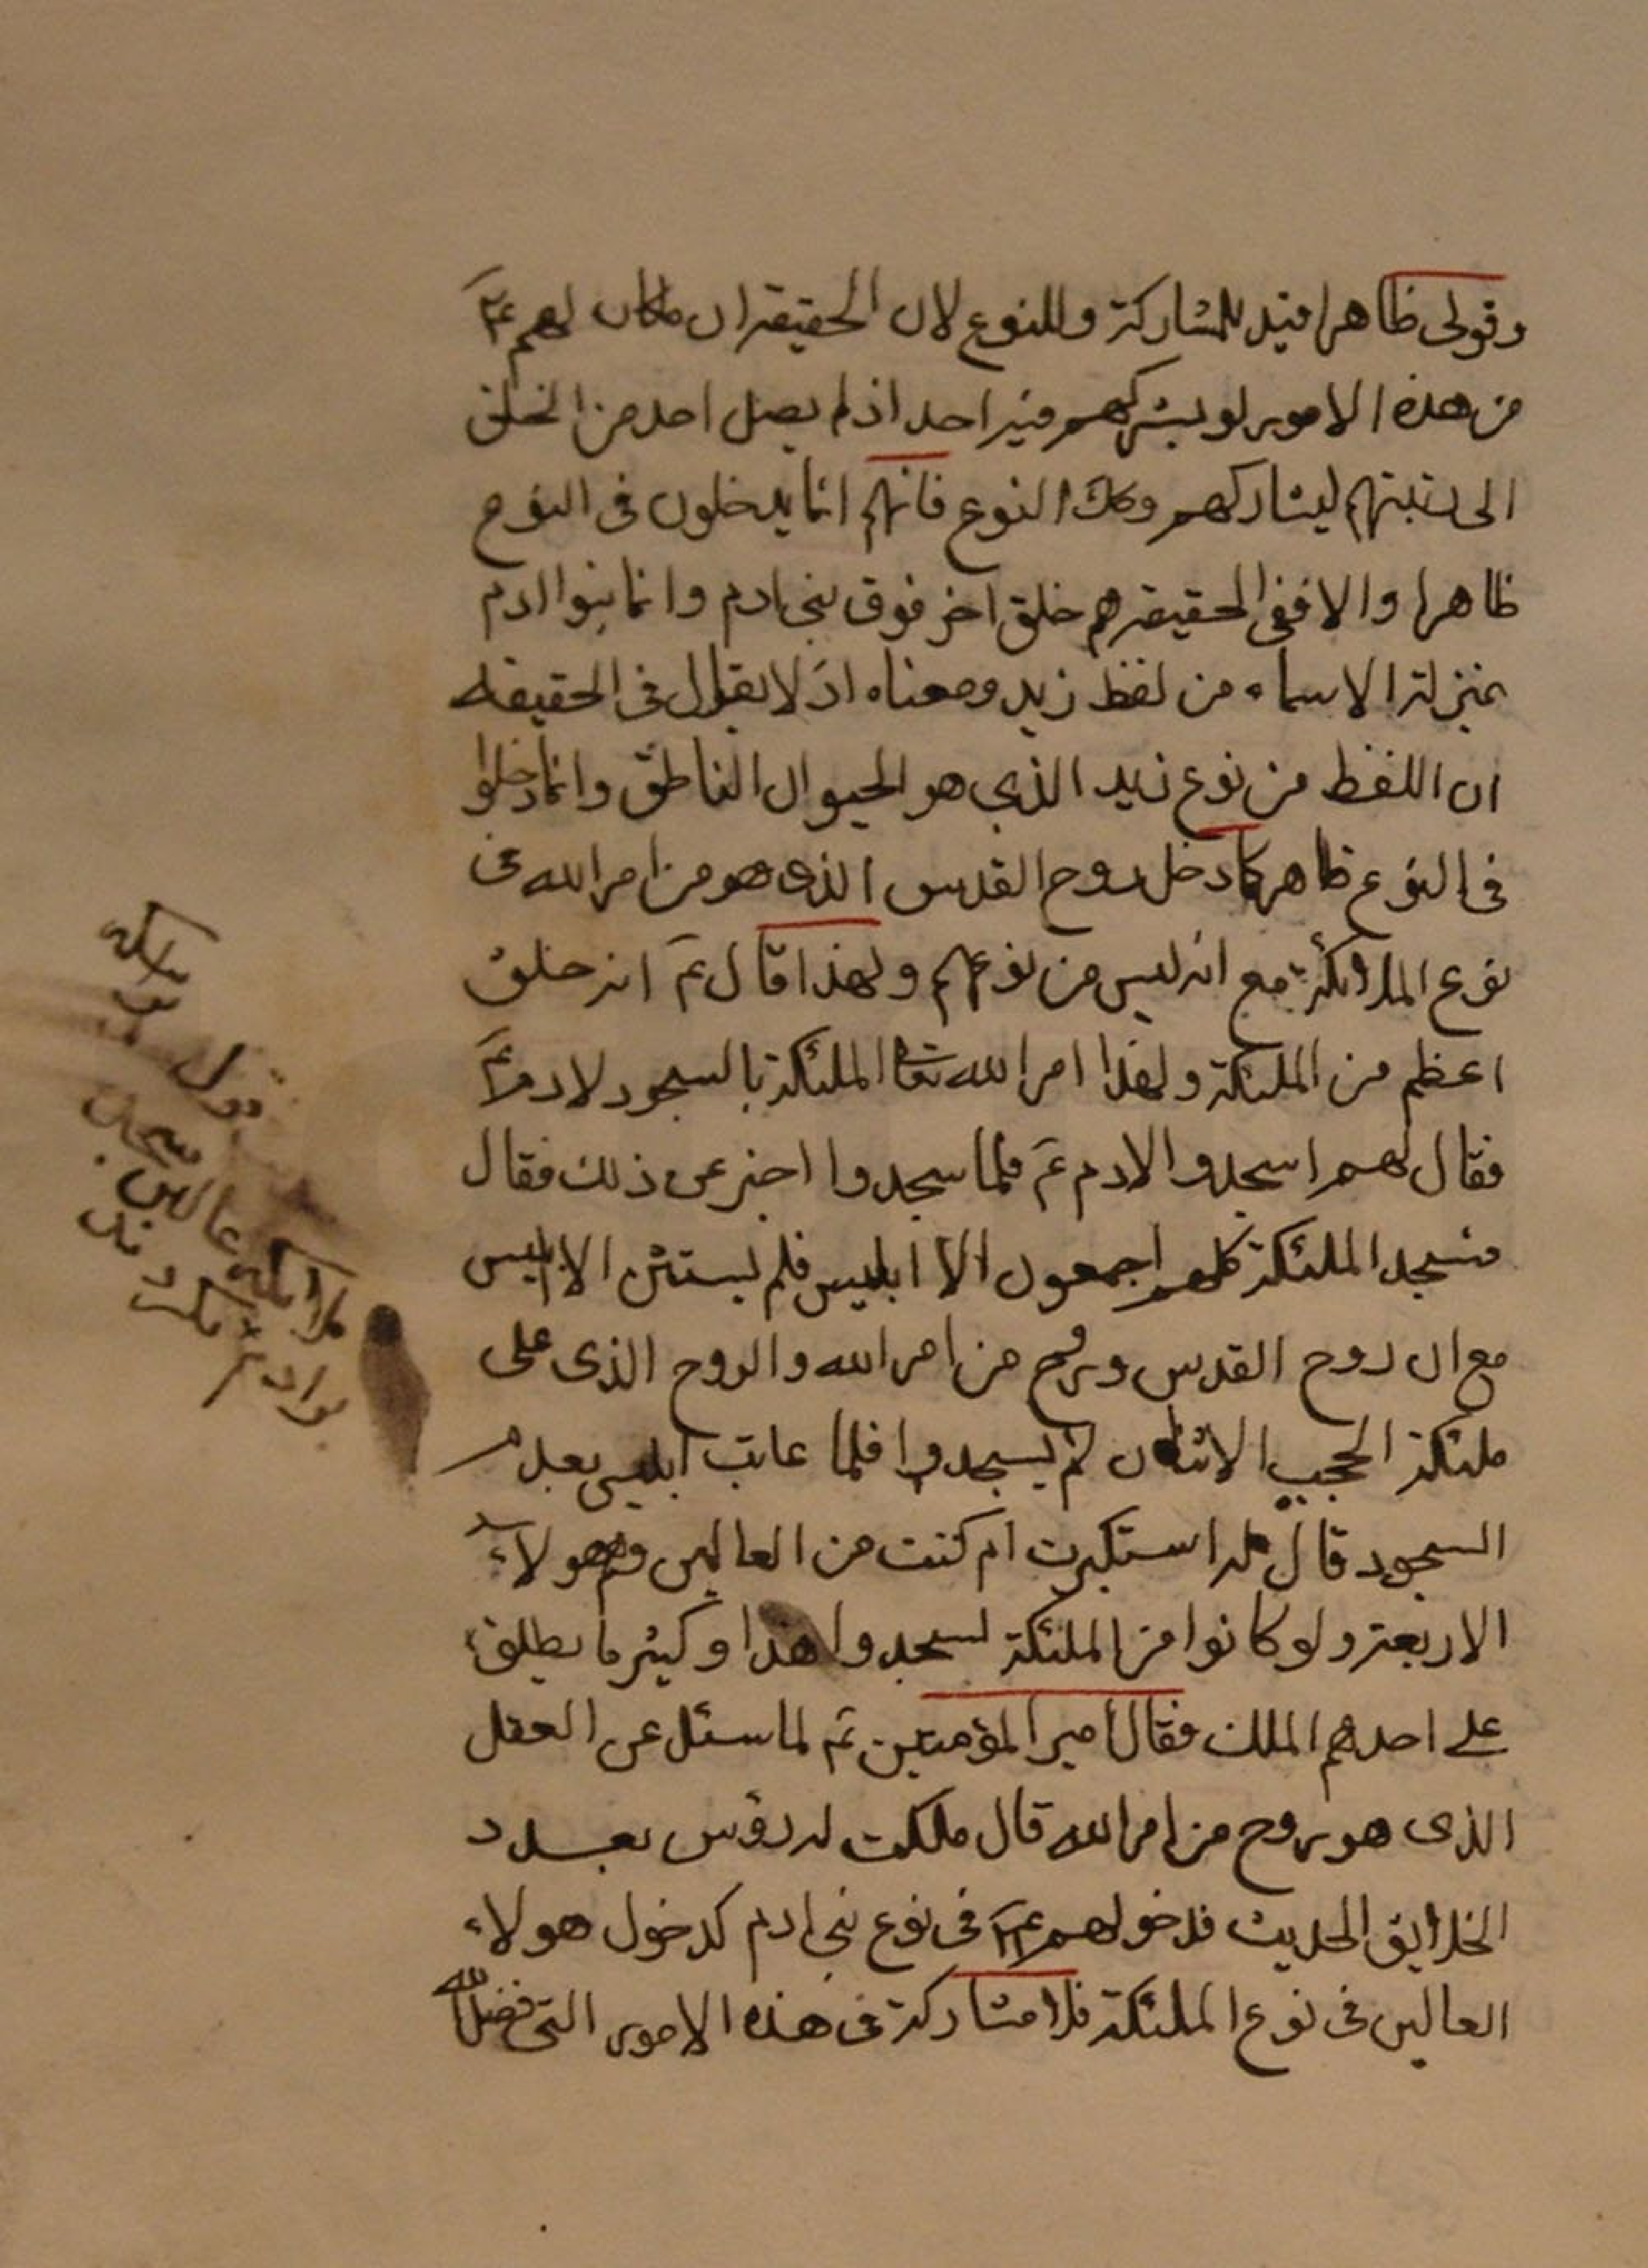 وقولى ظاهرا قيد للمشاركة وللنوع لان الحقيقة ان ماكان لهم عم
من هذه الامور لو يشركهم فيه احد اذ لم يصل احد من الخلق
الى رتبتهم ليشاركهم وكك النوع فانهم انما يدخلون فى النوع
ظاهرا والا ففى الحقيقة هم خلق اخر فوق بنى ادم وانما بنوا ادم
بمنزلة الاسماء من لفظ زيد ومعناه اذ لا يقال فى الحقيقه
ان اللفظ من نوع زيد الذى هو الحيوان الناطق وانما دخلوا
فى النوع ظاهر كما دخل روح القدس الذى هو من امر الله فى
نوع الملائكة مع انه ليس من نوعهم ولهذا قال عم انه خلق
اعظم من الملئكة ولهذا امر الله تعا الملئكة بالسجود لادم عم
فقال لهم اسجدوا لادم عم فلما سجدوا اخبر عن ذلك فقال
فسجد الملئكة كلهم اجمعون الا ابليس فلم يستثن الا ابليس
مع ان روح القدس وروح من امر الله والروح الذى على
ملئكة الحجب الاثنان لم يسجدوا فلما عاتب ابليس بعدم
السجود قال له استكبرت ام كنت من العالين وهم هولاء
الاربعة ولو كانوا من الملئكة لسجدوا هذا وكثير ما يطلق
على احدهم الملك فقال امير المؤمنين عم لما سئل عن العقل
الذى هو روح من امر الله قال ملك له رؤس بعدد
الخلائق الحديث فدخولهم عم فى نوع بنى ادم كدخول هولاء
العالين فى نوع الملئكة فلا مشاركة فى هذه الامور التى فضل الله
ملائكه عالين سجده